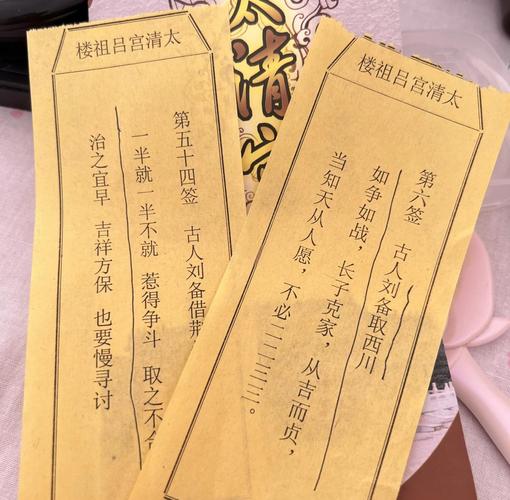 太清
太清宫吕祖楼
第五十四签 古人刘备借荆
一半就一半不就 惹得争斗 取之不
治之宜早 吉祥方保 也要慢寻讨
太清宫吕祖楼
第六签 古人刘备取西川
如争如战，长子克家，从吉而贞，
当知天从人愿，不必二二三三。